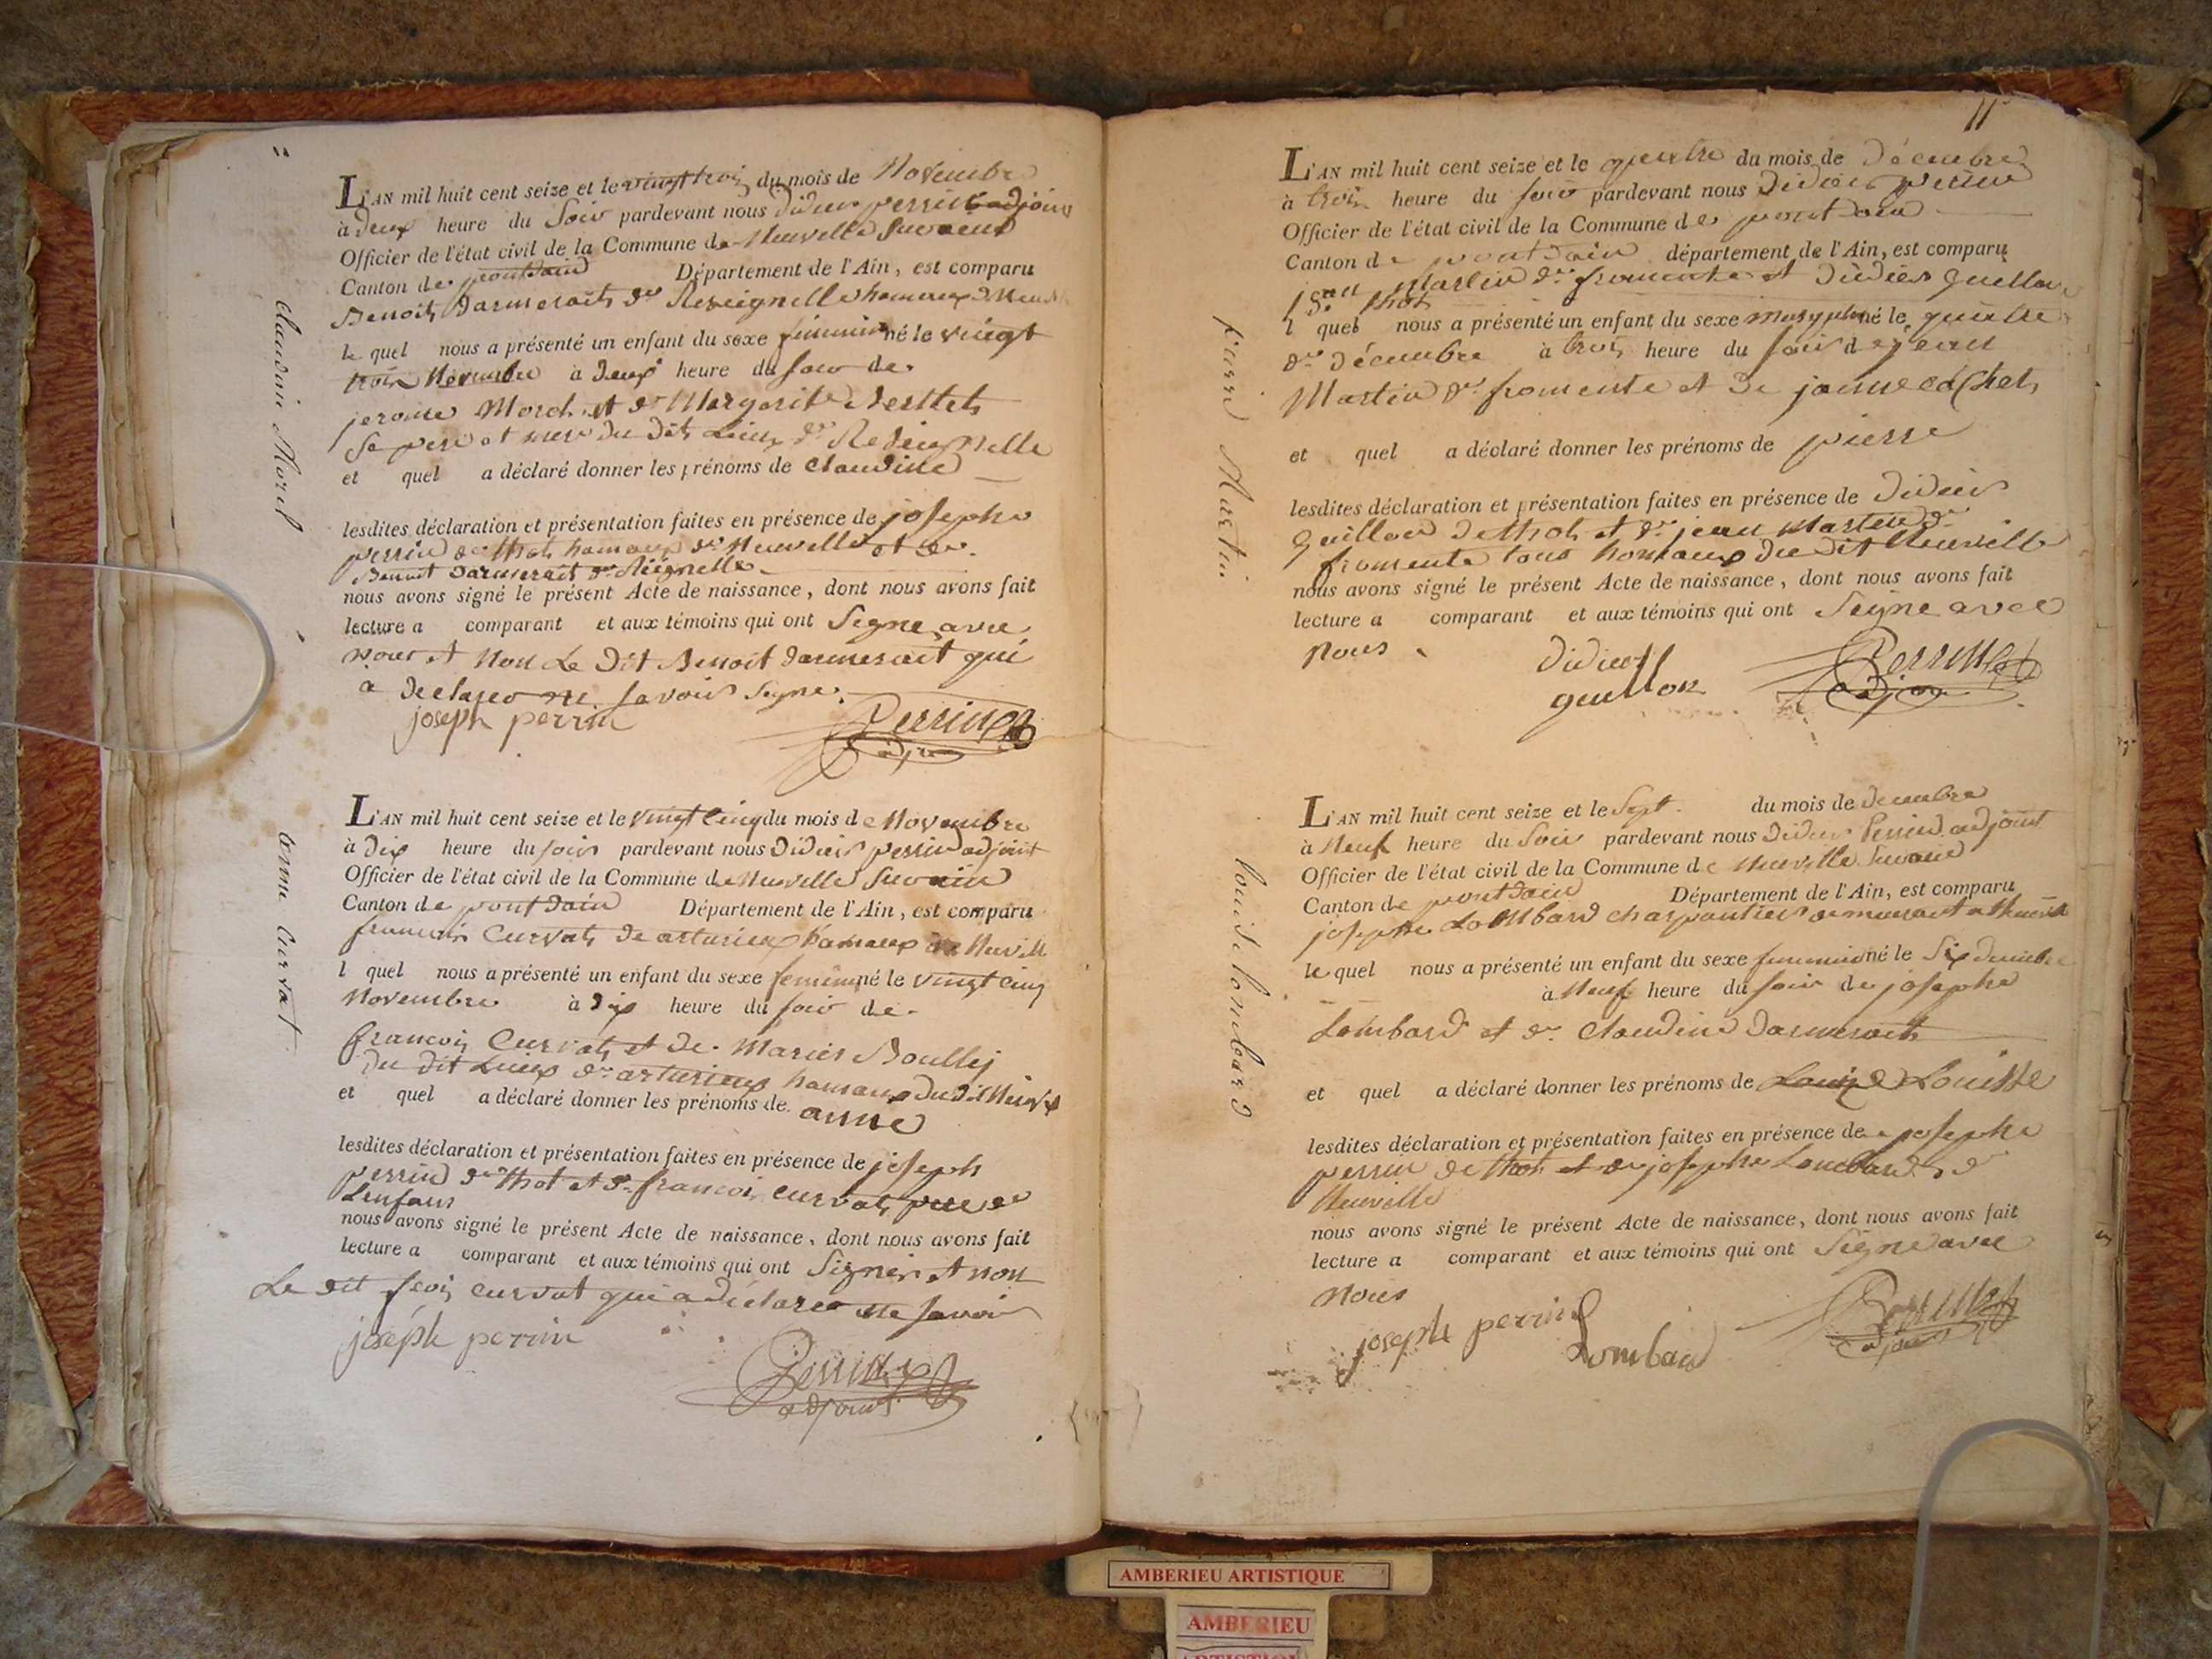 L'AN mil huit cent seize et le vingt trois du mois de Novembre
à deux heure du soir pardevant nous Didier perrin adjoint
Officier de l'état civil de la Commune de Neuvelle
Canton de pontdain Département de l'Ain, est comparu
Benoit Darmerait de hameaux
le quel nous a présenté un enfant du sexe feminin né le vingt
trois Novembre à deux heure du soir de
jerome Morel et de Margerite
père et mere du dit Lieux de
et quel a déclaré donner les prénoms de Claudine
lesdites déclaration et présentation faites en présence de josephe
perrin de thol hameaux de Neuvelle et de
Benoit Darmerait de
nous avons signé le présent Acte de naissance, dont nous avons fait
lecture a comparant et aux témoins qui ont Signe avec
nous et non Le Dit Benoit Darmerait qui
a declareo ne savoir Signe
joseph perrin Perrin
adj
claudine Morel
L'AN mil huit cent seize et le vingt cinq du mois de Novembre
à dix heure du soir pardevant nous Didier perrin adjoint
Officier de l'état civil de la Commune de Neuvelle
Canton de pont dain Département de l'Ain, est comparu
francois Curvat de arturieux hameaux de Neuvelle
l quel nous a présenté un enfant du sexe feminin né le vingt cinq
Novembre à dix heure du soir de
francois Curvat et de Marier
du dit Lieux de arturieux hameaux du dit
et quel a déclaré donner les prénoms de anne
lesdites déclaration et présentation faites en présence de joseph
perrin de thol et de francois curvat pere de
Lenfans
nous avons signé le présent Acte de naissance, dont nous avons fait
lecture a comparant et aux témoins qui ont Signer et non
Le dit fcois curvat qui a déclarer ne savoir
joseph perrin
Perrin
adjoint
anne curvat
11
L'AN mil huit cent seize et le quatre du mois de Décembre
à trois heure du soir pardevant nous Didier perrin
Officier de l'état civil de la Commune de pontdain
Canton de pontdain département de l'Ain, est comparu
jean Martin de fromente et Didier
thol
l quel nous a présenté un enfant du sexe né le quatre
de Décembre à trois heure du soir de jean
Martin de fromente et de janne
et quel a déclaré donner les prénoms de pierre
lesdites déclaration et présentation faites en présence de Didier
Guillon de thol et de jean Martin de
fromente tous hameaux du dit Neuville
nous avons signé le présent Acte de naissance, dont nous avons fait
lecture a comparant et aux témoins qui ont Signe avec
nous
Didier Perrin
guillon adj
Pierre Martin
L'AN mil huit cent seize et le Sept du mois de Decembre
à Neuf heure du Soir pardevant nous Didier Perrin adjoint
Officier de l'état civil de la Commune de Neuville
Canton de pontdain Département de l'Ain, est comparu
josephe Lombard charpantier
le quel nous a présenté un enfant du sexe feminin né le Six Decembre
à Neuf heure du soir de josephe
Lombard et de Claudine Darmerait
et quel a déclaré donner les prénoms de Louise Louisse
lesdites déclaration et présentation faites en présence de josephe
perrin de thol et de josephe Lombard de
Neuville
nous avons signé le présent Acte de naissance, dont nous avons fait
lecture a comparant et aux témoins qui ont Signe avec
nous
joseph perrin Lombard Perrin
louise lombard
AMBERIEU ARTISTIQUE
AMBERIEU
ARTISTIQUE